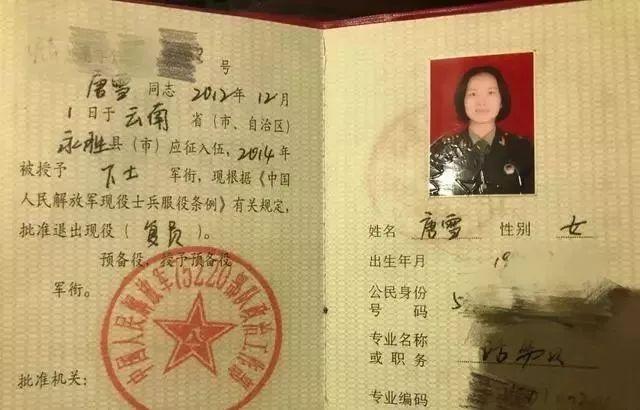 号
唐雪 同志 2012年 12月
1 日于 云南 省(市、自治区)
永胜 县(市)应征入伍,2014年
被授予 下士 军衔,现根据《中国
人民解放军现役士兵服役条例》有关规定,
批准退出现役( 复员 )。
预备役,授予预备役
军衔。
批准机关:
姓名 唐雪 性别 女
出生年月 19
公民身份 5
号 码
专业名称
或 职务
专业编码